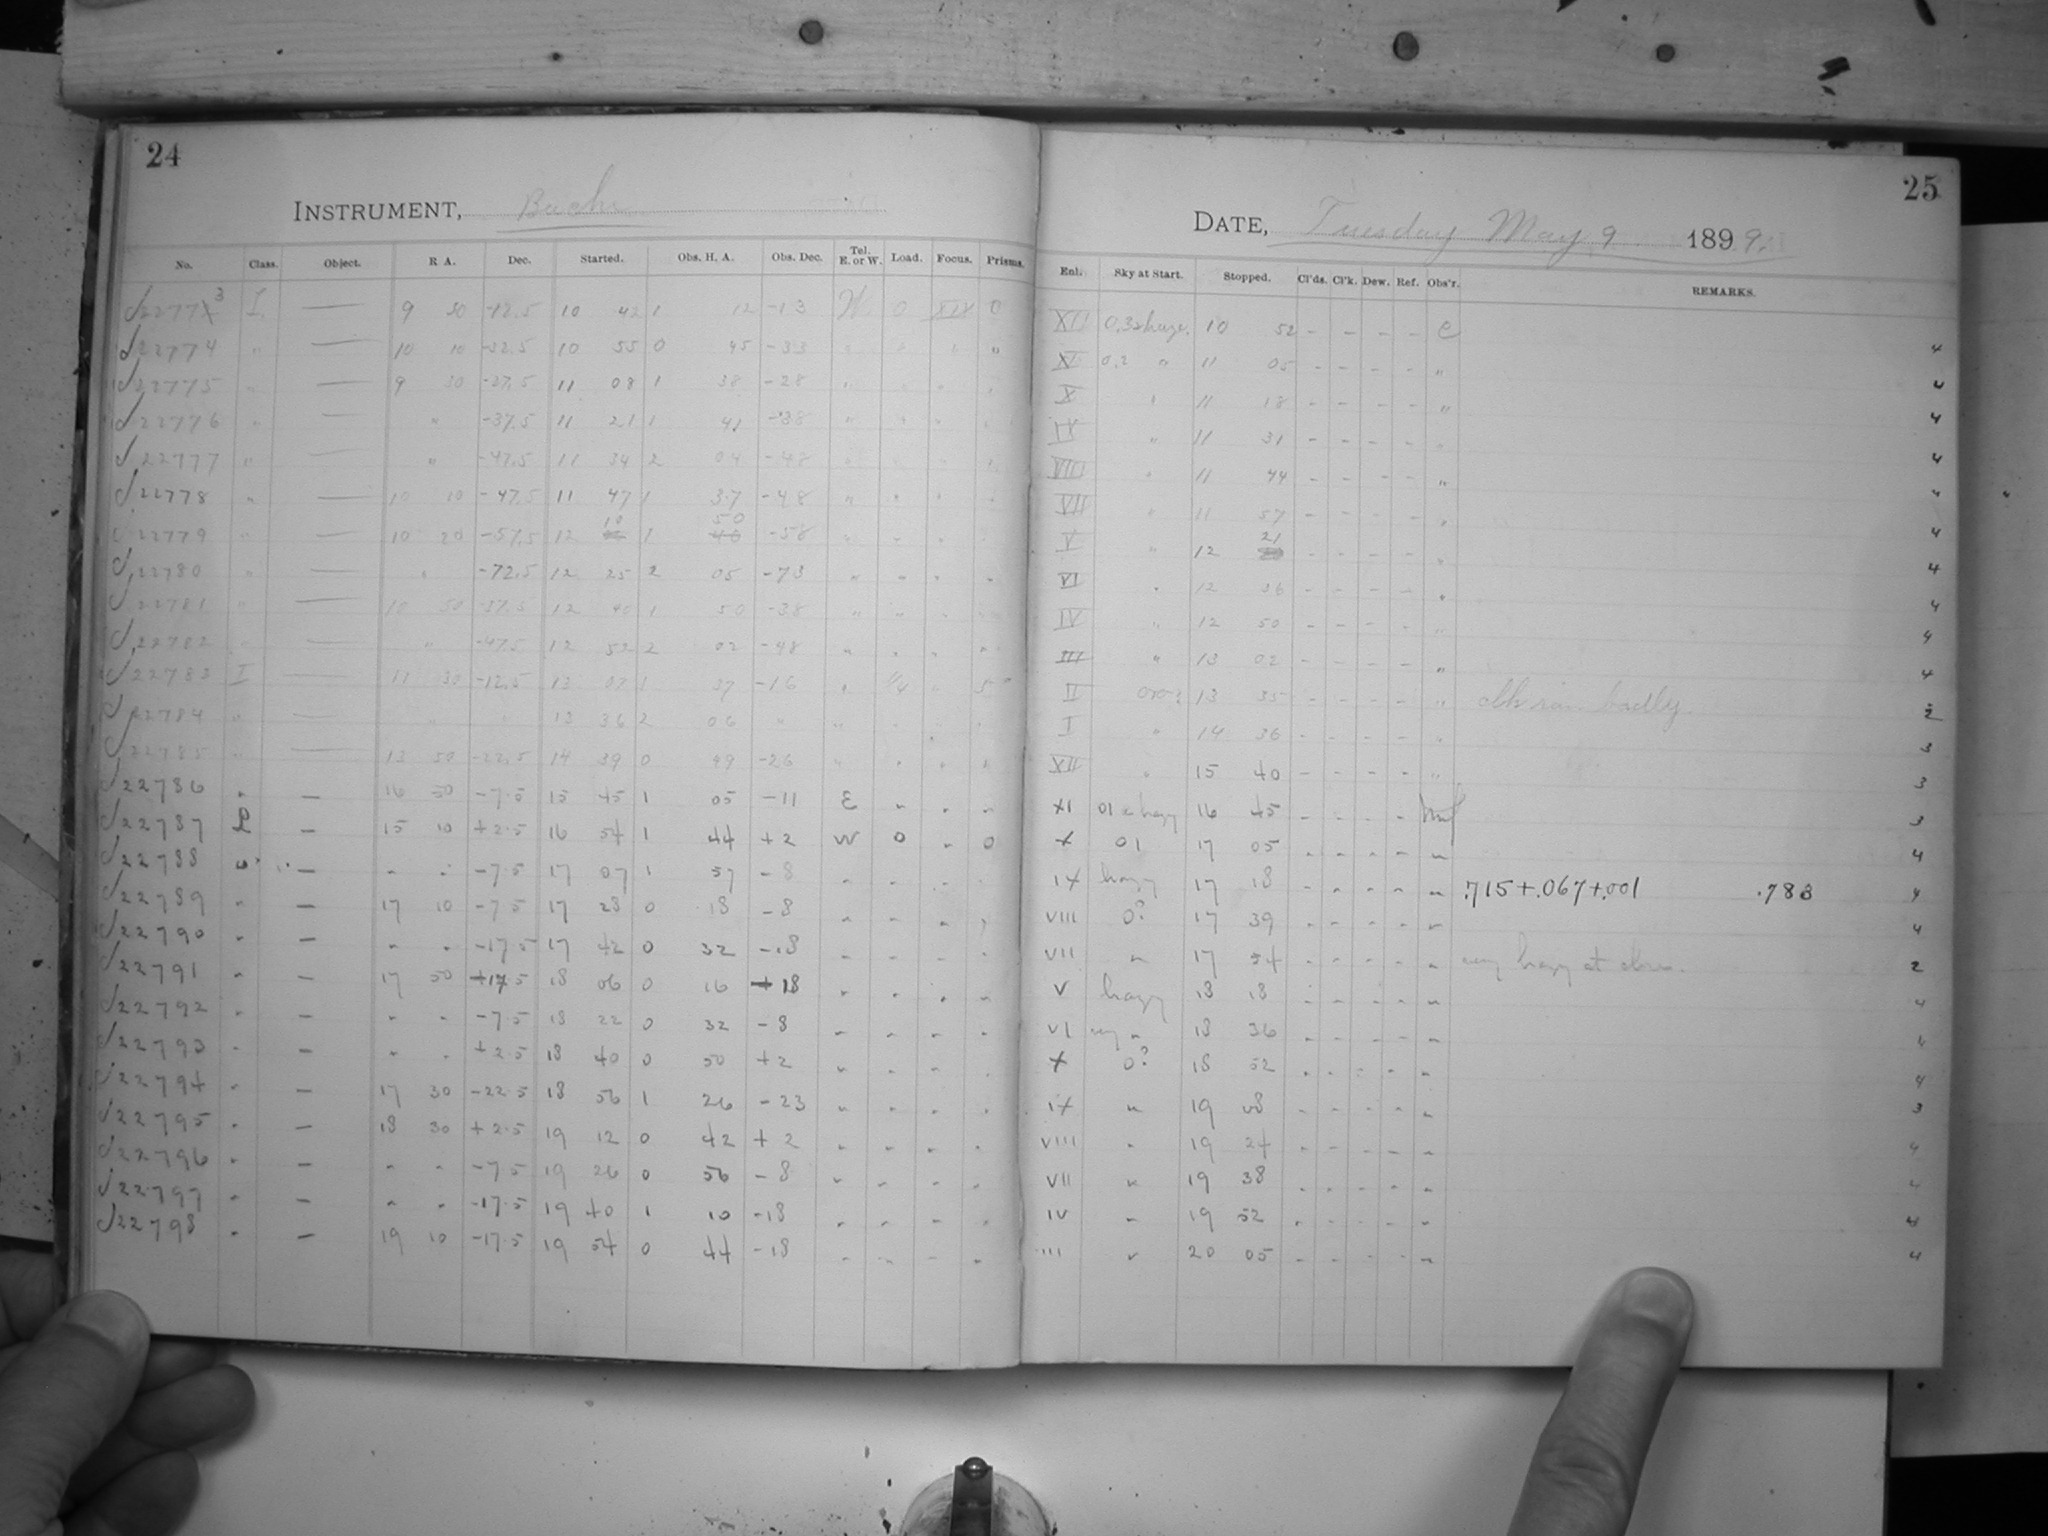 24
INSTRUMENT, Bache
No. Class. Object. R A. Dec. Started. Obs. H. A. Obs. Dec. Tel. E. or W. Load. Focus. Prisms.
25
DATE, Tuesday May 9 1899.
Enl. Sky at Start. Stopped. Cl'ds. Cl'k. Dew. Ref. Obs'r. REMARKS.
I. — 9 50 -12.5 10 42 1 12 -13 W 0 XII 10 52 - - - - C
J22774 " — 10 10 -32.5 10 55 0 45 -33 " " " " XI 0.2 " 11 05 - - - - " 4
J22775 " — 9 50 11 08 1 38 -28 " " " " X " 11 18 - - - - " 4
J22776 " — " -37.5 11 21 1 41 -38 " " " " IX " 11 31 - - - - " 4
J22777 " — " -47.5 11 34 2 04 -48 " " " " VIII " 11 44 - - - - " 4
J22778 " — 10 10 -47.5 11 47 1 37 -48 " " " " VII " 11 57 - - - - " 4
J22779 " — 10 20 -57.5 12 10 1 50 -58 " " " " V " 12 21 - - - - " 4
J22780 " — " -72.5 12 25 2 05 -73 " " " " VI " 12 36 - - - - " 4
J22781 " — 10 50 -37.5 12 40 1 50 -38 " " " " IV " 12 50 - - - - " 4
J22782 " — " -47.5 12 52 2 02 -48 " " " " III " 13 02 - - - - " 4
J22783 I — 11 30 -12.5 13 07 1 37 -16 " " 5 II 13 35 - - - - " badly 2
J22784 " — " " 13 36 2 06 " " " " I " 14 36 - - - - " 3
J22785 " — 13 50 -22.5 14 39 0 49 -26 " " " " XII " 15 40 - - - - " 3
J22786 " — 16 50 -7.5 15 45 1 05 -11 E " " " XI 01 & hazy 16 45 - - - - 3
J22787 — 15 10 +2.5 16 54 1 44 +2 W 0 " 0 X 01 17 05 - - - - " 4
J22788 " — " " -7.5 17 07 1 57 -8 " " " " IX hazy 17 18 - - - - " .715+.067+.001 .783 4
J22789 " — 17 10 -7.5 17 28 0 18 -8 " " " " VIII 0? 17 39 - - - - " 4
J22790 " — " " -17.5 17 42 0 32 -18 " " " " VII " 17 54 - - - - " very hazy at close. 2
J22791 " — 17 50 +17.5 18 06 0 16 +18 " " " " V hazy 18 18 - - - - " 4
J22792 " — " " -7.5 18 22 0 32 -8 " " " " VI very " 18 36 - - - - " 4
J22793 " — " " +2.5 18 40 0 50 +2 " " " " X 0? 18 52 - - - - " 4
J22794 " — 17 30 -22.5 18 56 1 26 -23 " " " " IX " 19 08 - - - - " 3
J22795 " — 18 30 +2.5 19 12 0 42 +2 " " " " VIII " 19 24 - - - - " 4
J22796 " — " " -7.5 19 26 0 56 -8 " " " " VII " 19 38 - - - - " 4
J22797 " — " " -17.5 19 40 1 10 -18 " " " " IV " 19 52 - - - - " 4
J22798 " — 19 10 -17.5 19 54 0 44 -18 " " " " III " 20 05 - - - - " 4